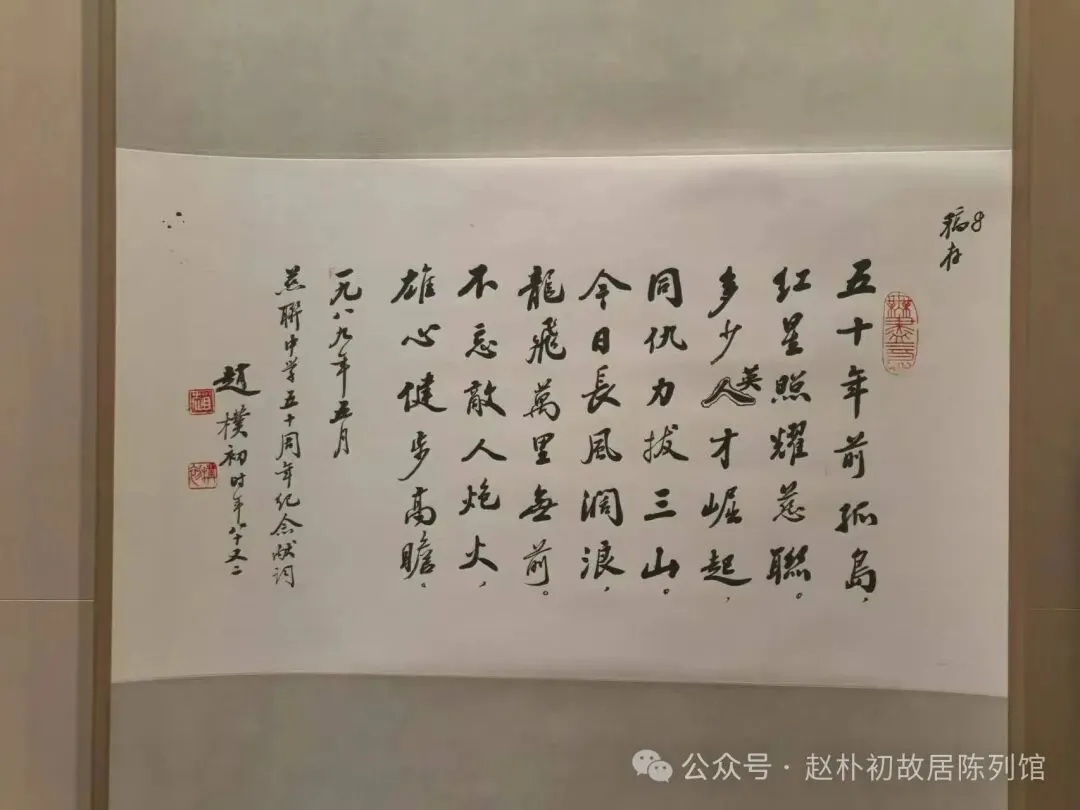 稿存
五十年前孤島，
红星照耀慈聯。
多少英才崛起，
同仇力拔三山。
今日長風濶浪，
龍飛萬里無前。
不忘敵人炮火，
雄心健步高瞻。
一九八九年五月
慈聯中学五十周年纪念献词
趙樸初时年八十又二
公众号·赵朴初故居陈列馆